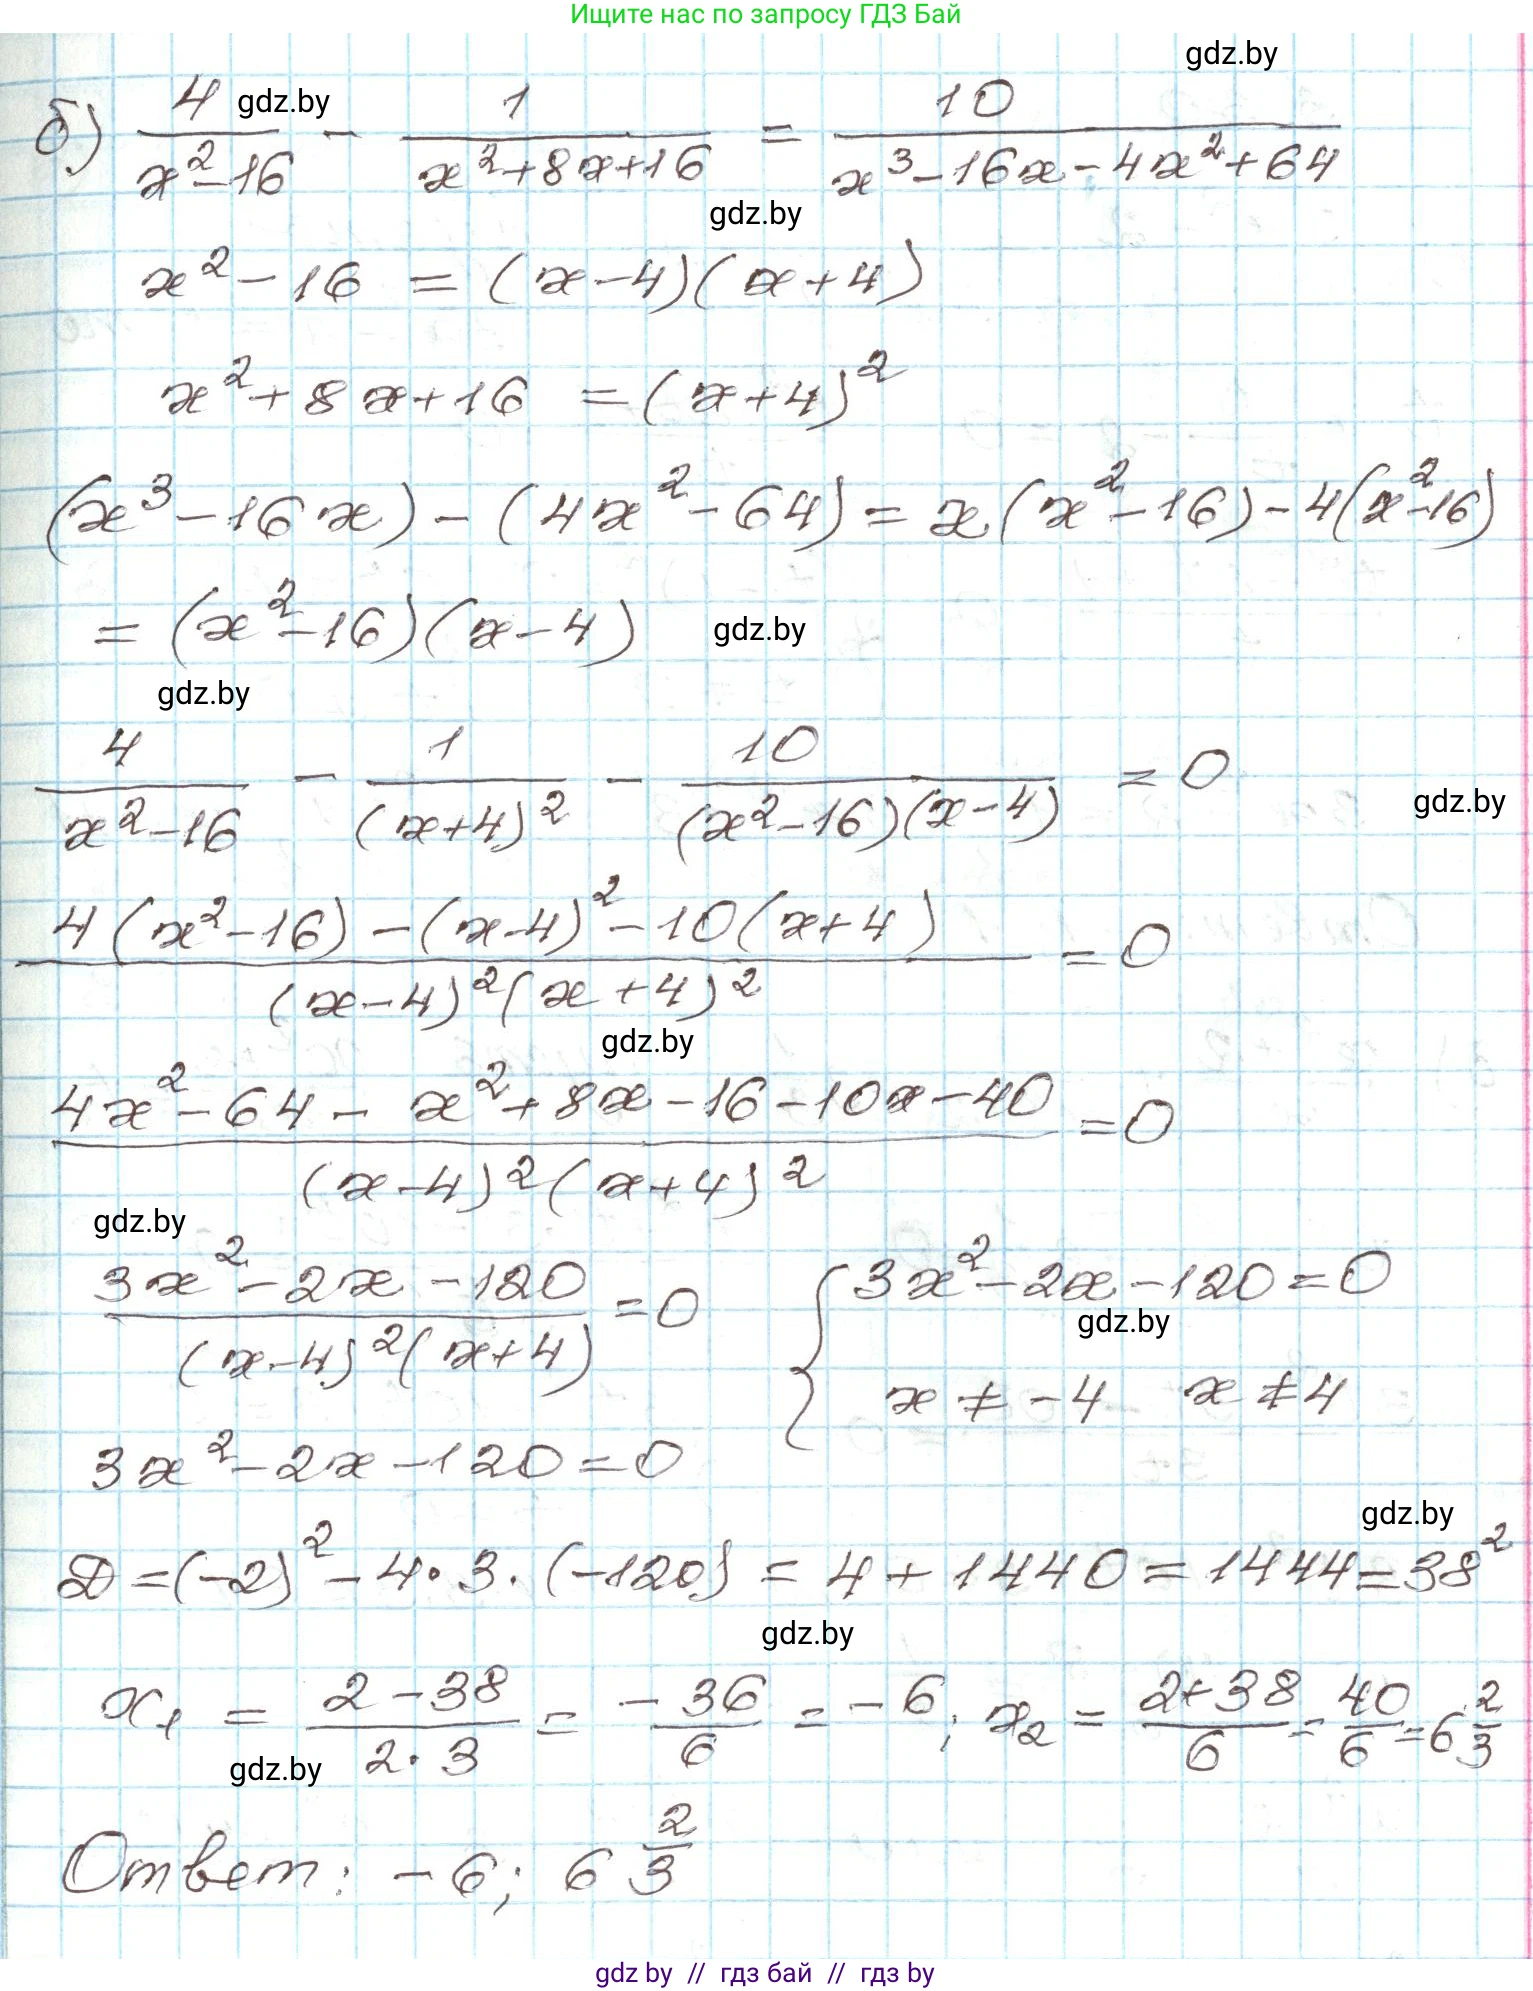 Ищите нас по запросу ГДЗ Бай
gdz.by
б) 4/(x²-16) gdz.by - 1/(x²+8x+16) = 10/(x³-16x-4x²+64)
gdz.by
x²-16 = (x-4)(x+4)
x²+8x+16 = (x+4)²
(x³-16x)-(4x²-64) = x(x²-16)-4(x²-16)
= (x²-16)(x-4) gdz.by
gdz.by
4/(x²-16) - 1/(x+4)² - 10/((x²-16)(x-4)) = 0
gdz.by
(4(x²-16)-(x-4)²-10(x+4))/((x-4)²(x+4)²) = 0
gdz.by
(4x²-64-x²+8x-16-10x-40)/((x-4)²(x+4)²) = 0
gdz.by
(3x²-2x-120)/((x-4)²(x+4)) = 0 { 3x²-2x-120=0
gdz.by
x ≠ -4 x ≠ 4
3x²-2x-120=0
gdz.by
D=(-2)²-4·3·(-120) = 4+1440 = 1444 = 38²
gdz.by
x₁ = (2-38)/(2·3) = -36/6 = -6; x₂ = (2+38)/6 = 40/6 = 6 2/3
gdz.by
Ответ: -6; 6 2/3
gdz by // гдз бай // гдз by